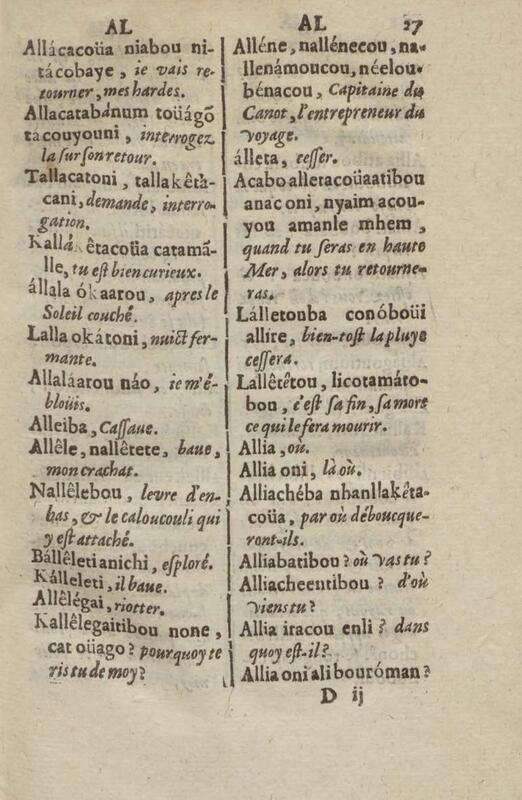 AL
Allácacoüa niabou ni-
tácobaye, ie vais re-
tourner, mes hardes.
Allacatabánum toüágõ
tácouyouni, interrogez
la sur son retour.
Tallacatoni, tallakêtà-
cani, demande, interro-
gation.
Kallákêtacoüa catamã-
lle, tu est bien curieux.
állala ókaarou, apres le
Soleil couché.
Lalla okátoni, nuict fer-
mante.
Allaláarou náo, ie m'é-
bloüis.
Alleiba, Cassaue.
Allêle, nallêtete, baue,
mon crachat.
Nallêlebou, levre d'en-
bas, & le caloucouli qui
y est attaché.
Bállêletianichi, esploré.
Kálleleti, il baue.
Allêlégai, riotter.
Kallêlegaitibou none,
cat oüago? pourquoy te
ris tu de moy?
AL 27
Alléne, nallénecou, na-
llenámoucou, néelou-
bénacou, Capitaine du
Canot, l'entrepreneur du
voyage.
álleta, cesser.
Acabo alletacoüaatibou
anac oni, nyaim acou-
you amanle mhem,
quand tu seras en haute
Mer, alors tu retourne-
ras.
Lálletouba conóboüi
allire, bien-tost la pluye
cessera.
Lallêtêtou, licotamáto-
bou, c'est sa fin, sa mort
ce qui le fera mourir.
Allia, où.
Allia oni, là où.
Alliachéba nhanllakêta-
coüa, par où déboucque-
ront-ils.
Alliabatibou? où vas tu?
Alliacheentibou? d'où
viens tu?
Allia iracou enli? dans
quoy est-il?
Allia oni ali bouróman?
D ij